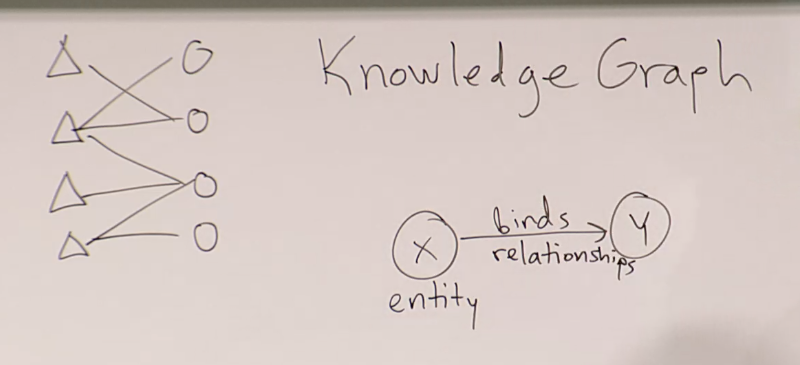 Knowledge Graph
binds
X
Y
relationships
entity